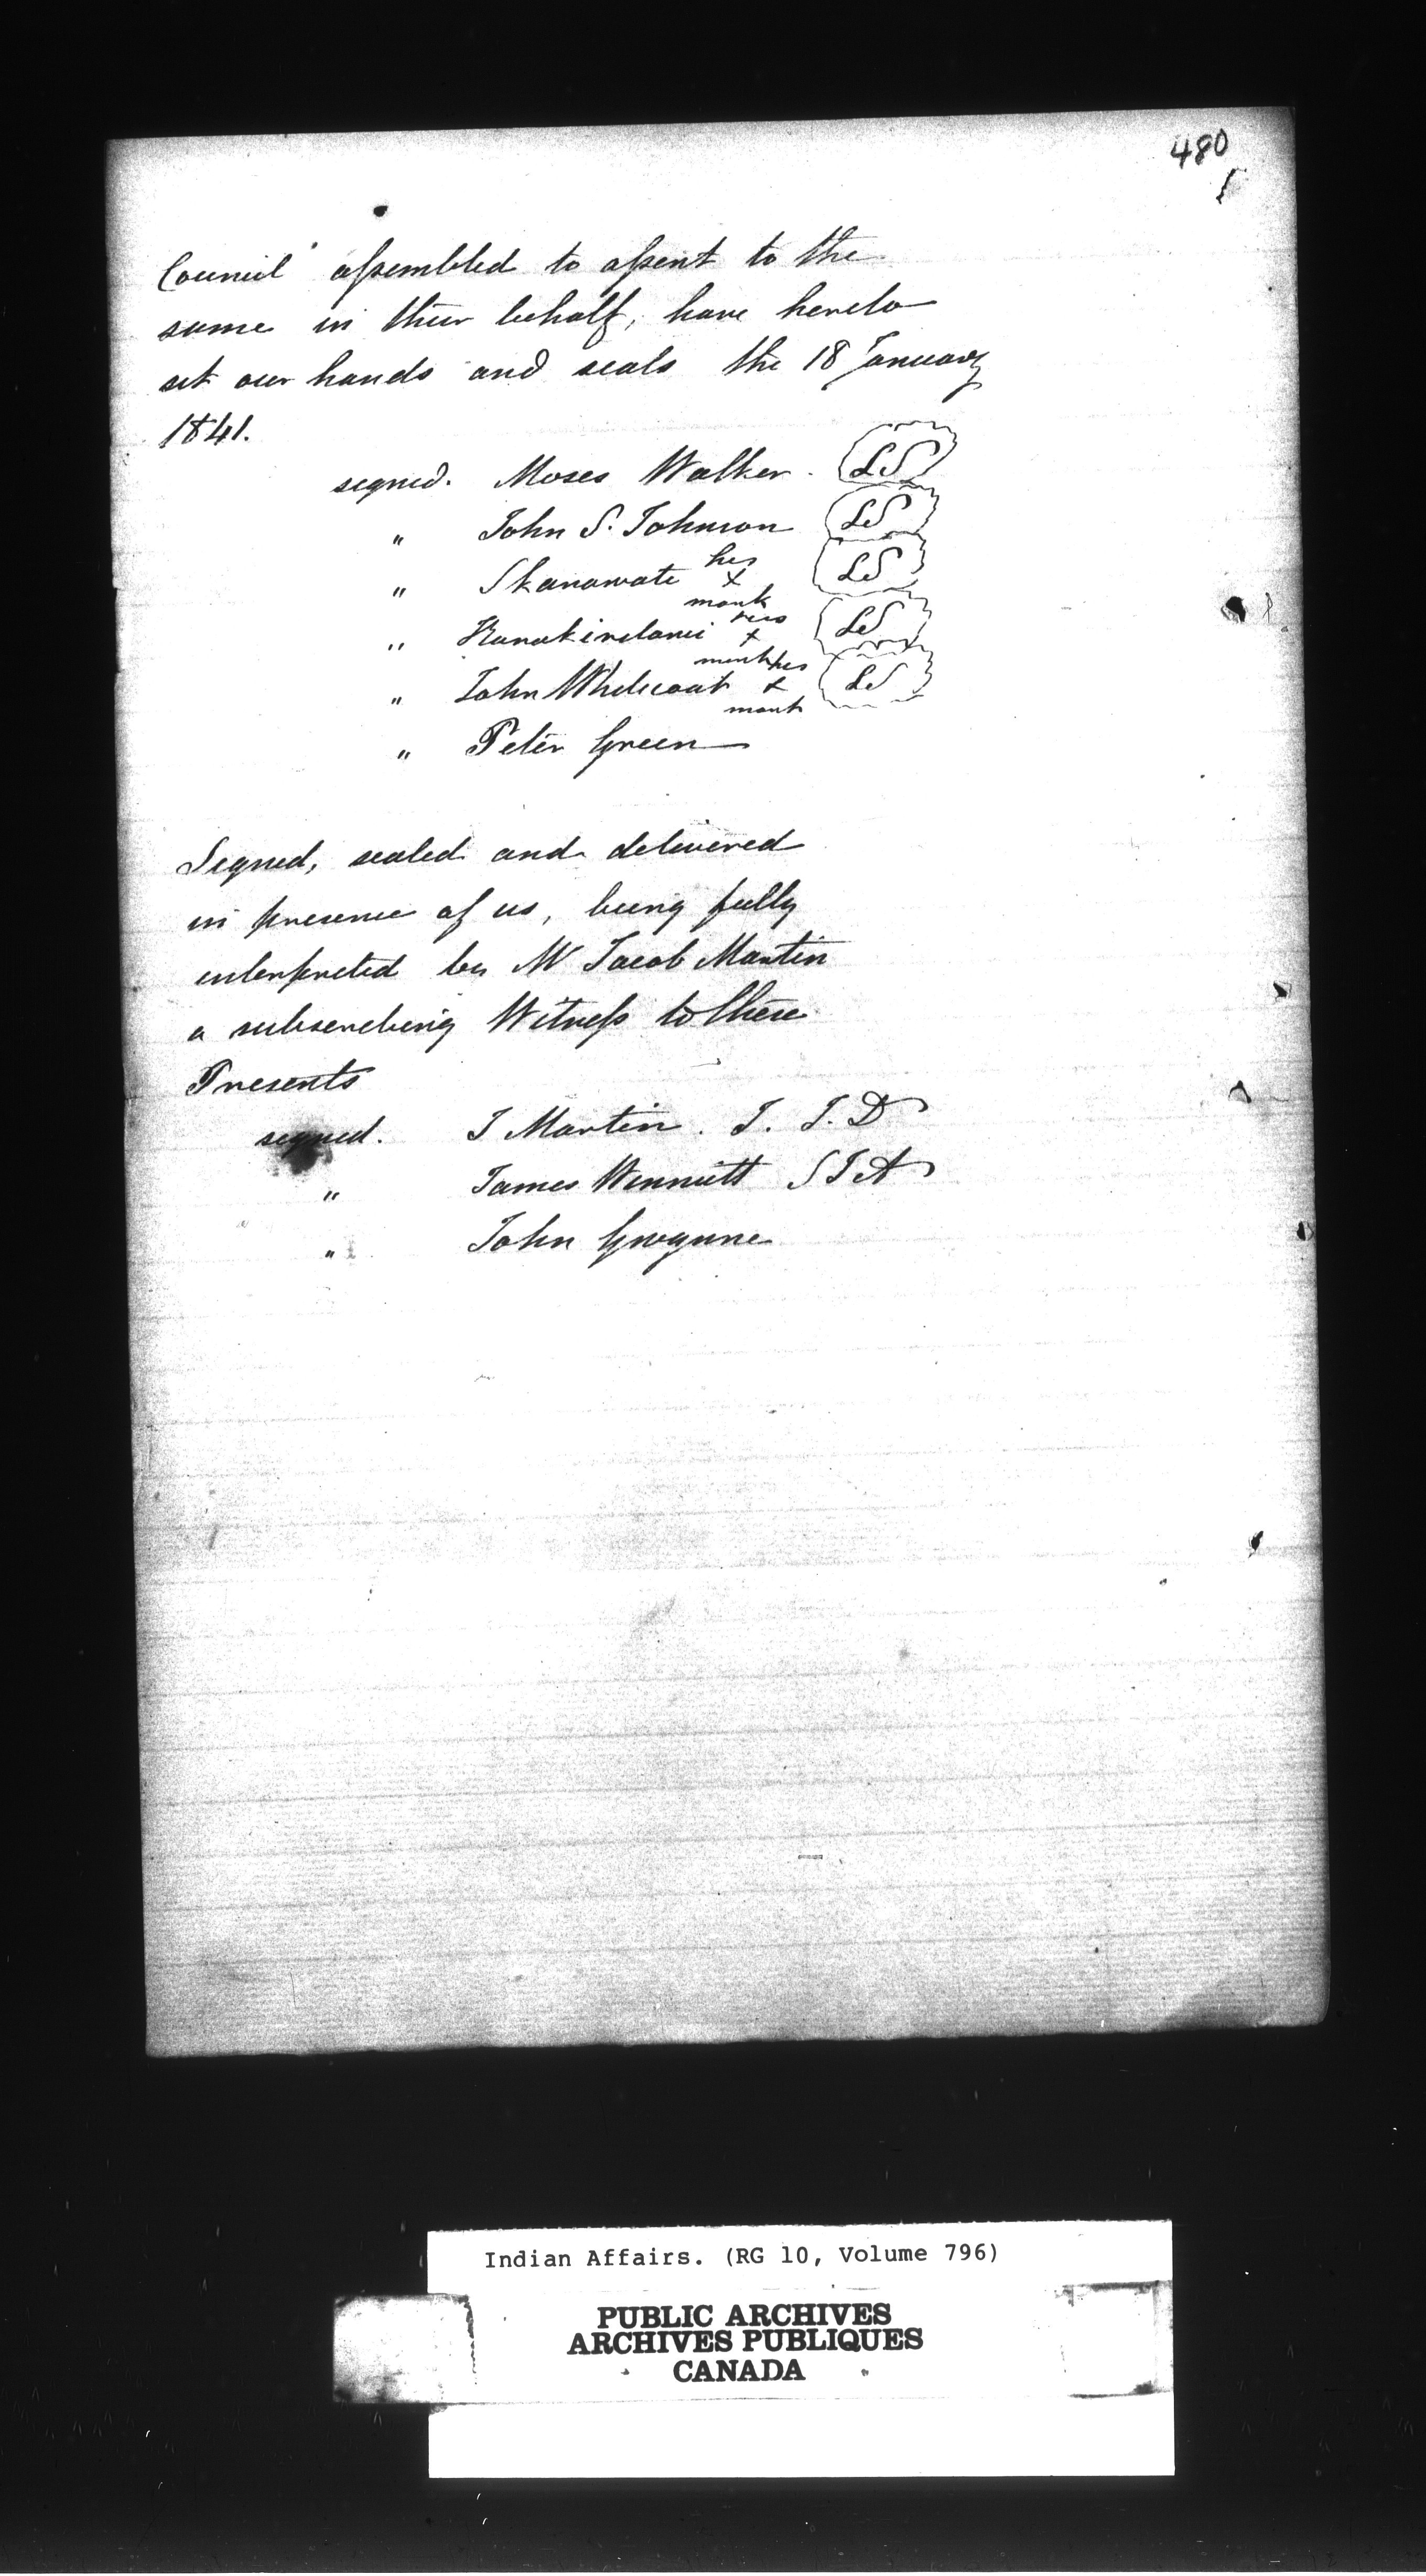 480
Council assembled to assent to the
same in their behalf, have hereto
set our hands and seals the 18 January
1841.
signed. Moses Walker. LS
" John S. Johnson LS
" Skanawate his x mark LS
" his x mark LS
" John Whitecoat his x mark LS
" Peter Green
Signed, sealed and delivered
in presence of us, being fully
interpreted by Mr Jacob Martin
a subscribing Witness to these
Presents
signed. J Martin. J. I. D
" James Winniett S I A
" John Gwynne
Indian Affairs. (RG 10, Volume 796)
PUBLIC ARCHIVES
ARCHIVES PUBLIQUES
CANADA